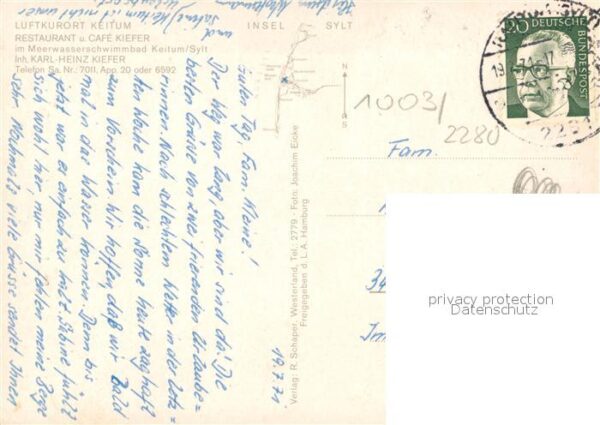 LUFTKURORT KEITUM
RESTAURANT u. CAFÉ KIEFER
im Meerwasserschwimmbad Keitum/Sylt
Inh. KARL-HEINZ KIEFER
Telefon Sa. Nr.: 7011, App. 20 oder 6592
INSEL SYLT
N
S
20 DEUTSCHE BUNDESPOST
1003/
2280
Fam.
Verlag: R. Schaper, Westerland, Tel. 2779 · Foto: Joachim Eicke
Freigegeben d. L. A. Hamburg
19.7.71
Guten Tag, Fam. Kleine!
Der Weg war lang, aber wir sind da! Die
besten Grüsse von zwei frierenden Urlaube=
rinnen. Nach schlechtem Wetter in der letz=
ten Woche kam die Sonne heute zaghaft
zum Vorschein. Wir hoffen, daß wir bald
mal in das Wasser können. Denn bis
jetzt war es einfach zu kalt. Sabine fühlt
sich wohl hier nur mir fehlen meine Berge
sehr. Nochmals viele Grüsse sendet Ihnen
und
privacy protection
Datenschutz